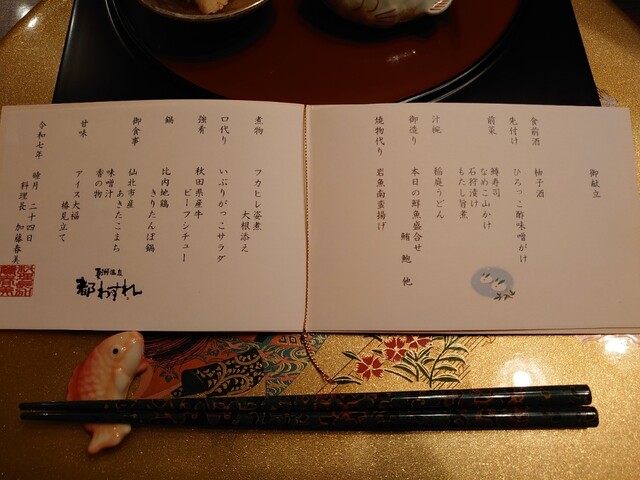 御献立
食前酒　柚子酒
先付け　ひろっこ酢味噌がけ
前菜　鱒寿司
なめこ山かけ
石狩漬け
もたし旨煮
汁椀　稲庭うどん
御造り　本日の鮮魚盛合せ
鮪　鮑　他
焼物代り　岩魚南蛮揚げ
煮物　フカヒレ姿煮
大根添え
口代り　いぶりがっこサラダ
強肴　秋田県産牛
ビーフシチュー
鍋　比内地鶏
きりたんぽ鍋
御食事　仙北市産
あきたこまち
味噌汁
香の物
甘味　アイス大福
椿見立て
令和七年　睦月　二十四日
料理長　加藤春美
夏瀬温泉
都わすれ